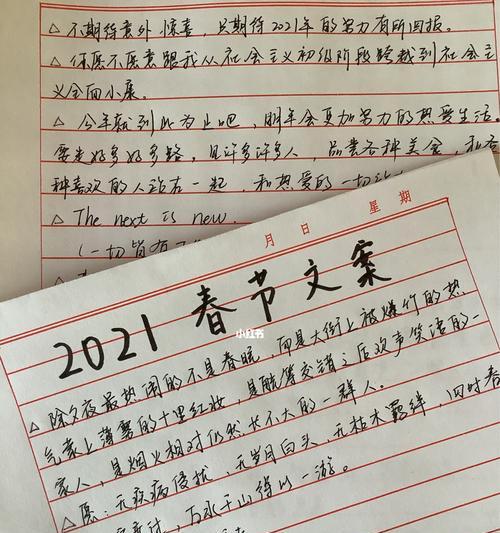 △ 不期待意外惊喜，只期待2021年的努力有所回报。
△ 你愿不愿意跟我从社会主义初级阶段跨越到社会主
义全面小康。
△ 今年就到此为止吧，明年会更加努力的热爱生活。
要走好多好多路，见许多许多人，品尝各种美食，和各
种喜欢的人站在一起，和热爱的一切
△ The next is new.
(一切皆有
△
月 日 星期
2021 春节文案
小红书
△ 除夕夜最热闹的不是春晚，而是大街上被爆竹的热
气蒙上薄雾的十里红妆，是觥筹交错之后欢声笑语的一
家人，是烟火相对仍然长不大的一群人。
△ 愿：无疾病侵扰，无岁月白头，无枯木羁绊，四时春
万水千山得以一游。